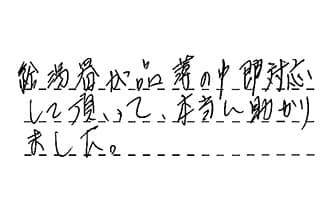 給湯器が品薄の中即対応
して頂いて、本当に助かり
ました。